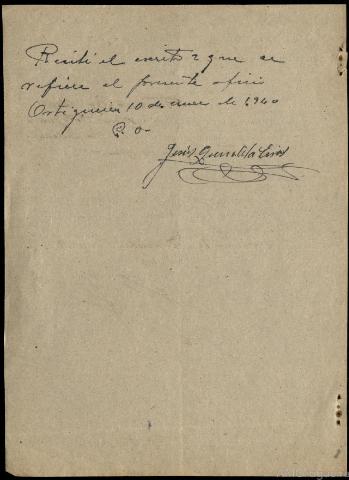 Recibí el escrito a que se
refiere el presente oficio
Ortigueira 10 de enero de 1940
P. O.
Jesús